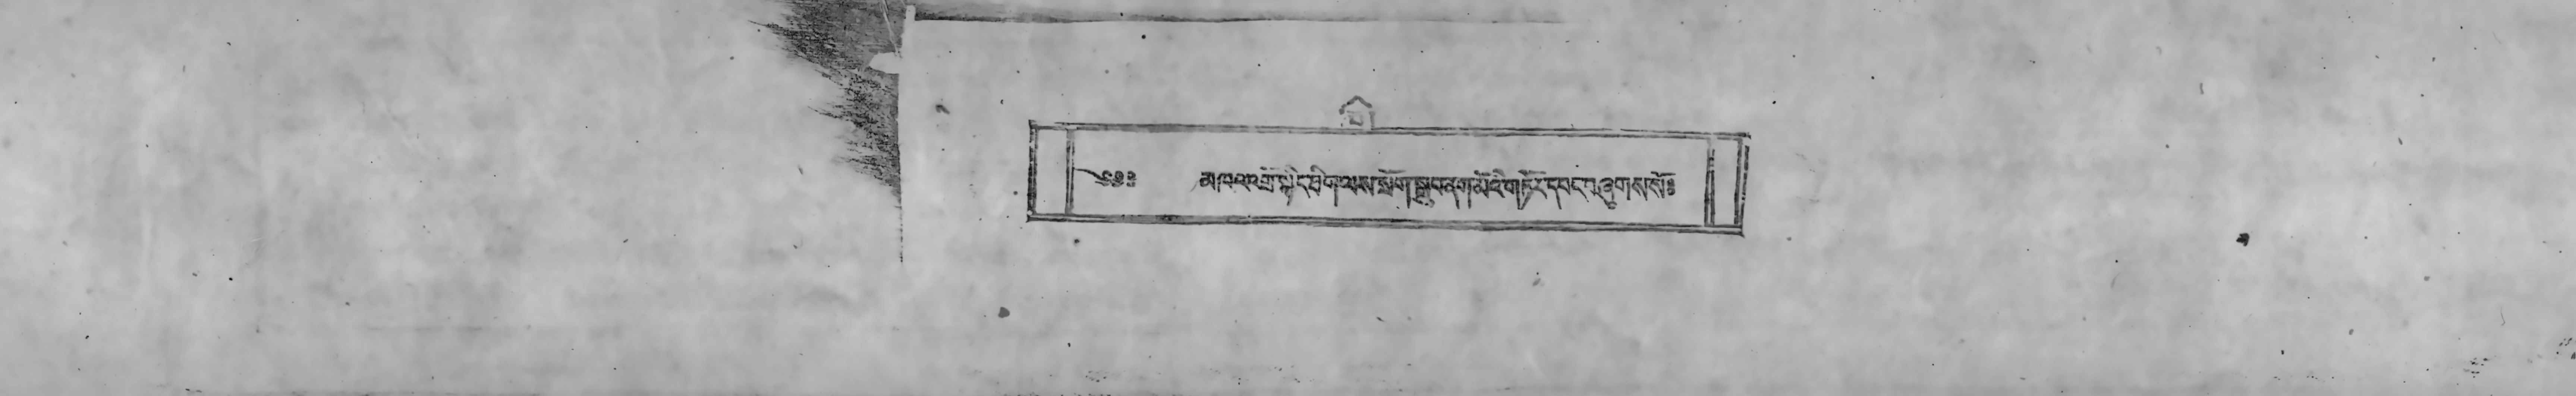 ༄༅༔ མཁའ་འགྲོ་སྙིང་ཐིག་ལས་སྲོག་སྒྲུབ་ནག་མོའི་གཏོར་དབང་བཞུགས་སོ༔